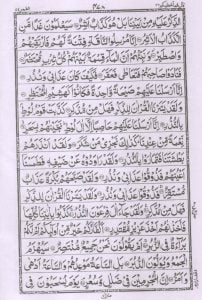 قال فما خطبكم ٢٧ القمر ٥٤
الذِّكْرُ عَلَيْهِ مِنْۢ بَيْنِنَا بَلْ هُوَ كَذَّابٌ اَشِرٌ ۝ سَيَعْلَمُوْنَ غَدًا مَّنِ
الْكَذَّابُ الْاَشِرُ ۝ اِنَّا مُرْسِلُوا النَّاقَةِ فِتْنَةً لَّهُمْ فَارْتَقِبْهُمْ
وَاصْطَبِرْ ۝ وَنَبِّئْهُمْ اَنَّ الْمَآءَ قِسْمَةٌۢ بَيْنَهُمْ كُلُّ شِرْبٍ مُّحْتَضَرٌ ۝
فَنَادَوْا صَاحِبَهُمْ فَتَعَاطٰى فَعَقَرَ ۝ فَكَيْفَ كَانَ عَذَابِيْ وَنُذُرِ
۝ اِنَّآ اَرْسَلْنَا عَلَيْهِمْ صَيْحَةً وَّاحِدَةً فَكَانُوْا كَهَشِيْمِ الْمُحْتَظِرِ
۝ وَلَقَدْ يَسَّرْنَا الْقُرْاٰنَ لِلذِّكْرِ فَهَلْ مِنْ مُّدَّكِرٍ ۝ كَذَّبَتْ قَوْمُ لُوْطٍۭ
بِالنُّذُرِ ۝ اِنَّآ اَرْسَلْنَا عَلَيْهِمْ حَاصِبًا اِلَّآ اٰلَ لُوْطٍ نَجَّيْنٰهُمْ بِسَحَرٍ ۝
نِّعْمَةً مِّنْ عِنْدِنَا كَذٰلِكَ نَجْزِيْ مَنْ شَكَرَ ۝ وَلَقَدْ اَنْذَرَهُمْ
بَطْشَتَنَا فَتَمَارَوْا بِالنُّذُرِ ۝ وَلَقَدْ رَاوَدُوْهُ عَنْ ضَيْفِهٖ فَطَمَسْنَآ
اَعْيُنَهُمْ فَذُوْقُوْا عَذَابِيْ وَنُذُرِ ۝ وَلَقَدْ صَبَّحَهُمْ بُكْرَةً عَذَابٌ
مُّسْتَقِرٌّ ۝ فَذُوْقُوْا عَذَابِيْ وَنُذُرِ ۝ وَلَقَدْ يَسَّرْنَا الْقُرْاٰنَ لِلذِّكْرِ
فَهَلْ مِنْ مُّدَّكِرٍ ۝ وَلَقَدْ جَآءَ اٰلَ فِرْعَوْنَ النُّذُرُ ۝ كَذَّبُوْا بِاٰيٰتِنَا
كُلِّهَا فَاَخَذْنٰهُمْ اَخْذَ عَزِيْزٍ مُّقْتَدِرٍ ۝ اَكُفَّارُكُمْ خَيْرٌ مِّنْ اُولٰٓئِكُمْ اَمْ لَكُمْ
بَرَآءَةٌ فِى الزُّبُرِ ۝ اَمْ يَقُوْلُوْنَ نَحْنُ جَمِيْعٌ مُّنْتَصِرٌ ۝ سَيُهْزَمُ
الْجَمْعُ وَيُوَلُّوْنَ الدُّبُرَ ۝ بَلِ السَّاعَةُ مَوْعِدُهُمْ وَالسَّاعَةُ اَدْهٰى
وَاَمَرُّ ۝ اِنَّ الْمُجْرِمِيْنَ فِيْ ضَلٰلٍ وَّسُعُرٍ ۝ يَوْمَ يُسْحَبُوْنَ فِى